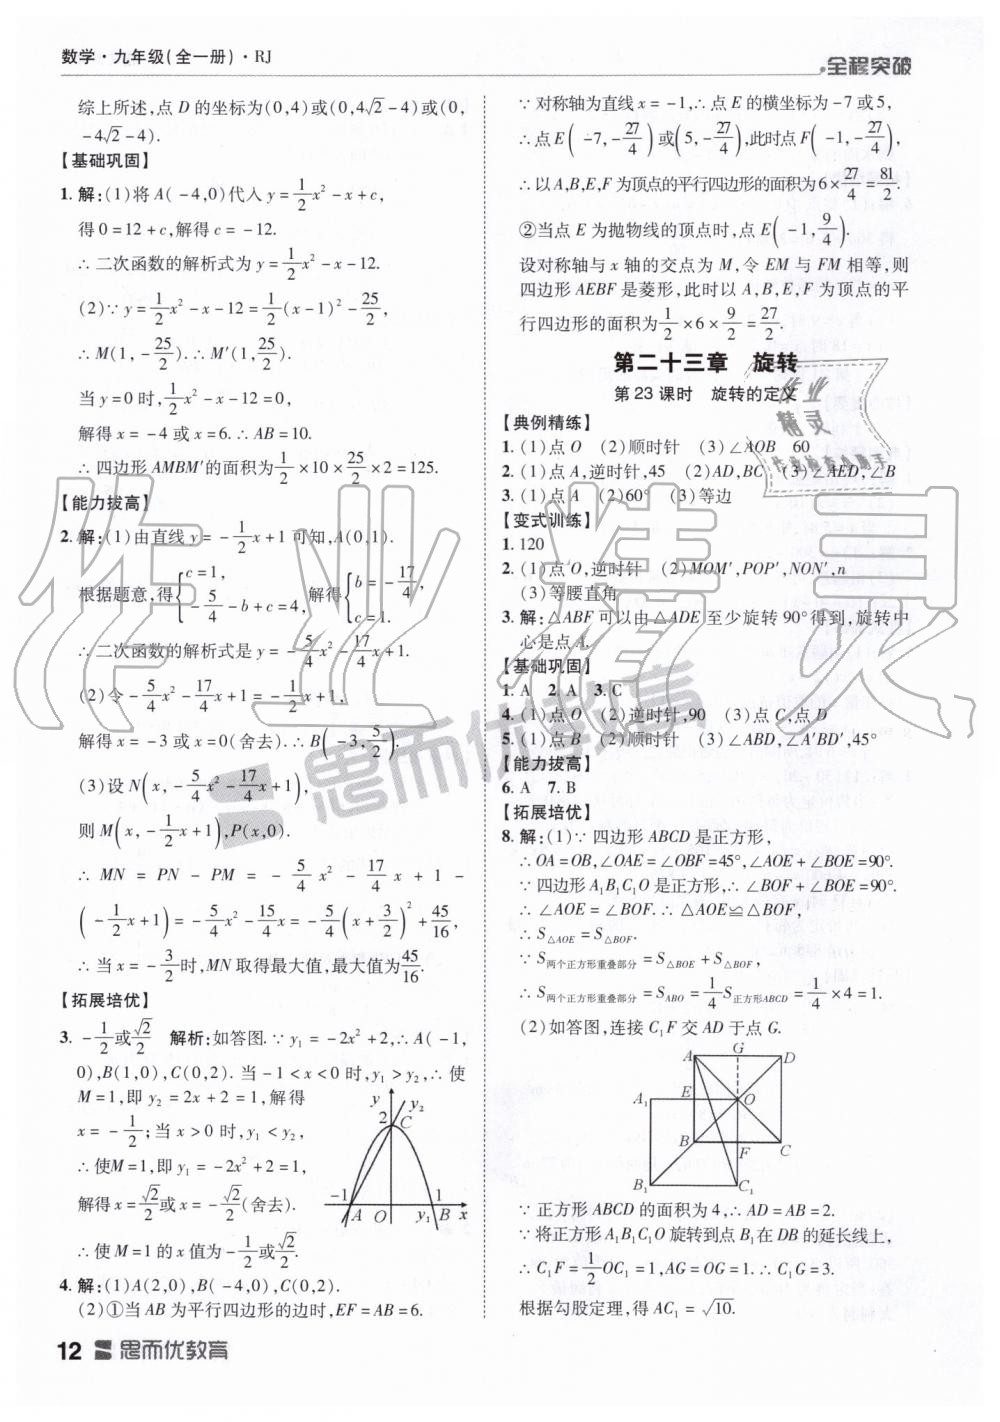 数学·九年级(全一册)·RJ
全程突破
综上所述,点 D 的坐标为(0,4)或(0,4√2-4)或(0,
-4√2-4).
【基础巩固】
1. 解:(1)将 A(-4,0)代入 y=1/2x²-x+c,
得 0=12+c,解得 c=-12.
∴二次函数的解析式为 y=1/2x²-x-12.
(2)∵y=1/2x²-x-12=1/2(x-1)²-25/2,
∴M(1,-25/2).∴M′(1,25/2).
当 y=0 时,1/2x²-x-12=0,
解得 x=-4 或 x=6.∴AB=10.
∴四边形 AMBM′的面积为1/2×10×25/2×2=125.
【能力拔高】
2. 解:(1)由直线 y=-1/2x+1 可知,A(0,1).
根据题意,得{c=1, -5/4-b+c=4,解得{b=-17/4, c=1.
∴二次函数的解析式是 y=-5/4x²-17/4x+1.
(2)令-5/4x²-17/4x+1=-1/2x+1,
解得 x=-3 或 x=0(舍去).∴B(-3,5/2).
(3)设 N(x,-5/4x²-17/4x+1),
则 M(x,-1/2x+1),P(x,0).
∴MN=PN-PM=-5/4x²-17/4x+1-
(-1/2x+1)=-5/4x²-15/4x=-5/4(x+3/2)²+45/16,
∴当 x=-3/2时,MN 取得最大值,最大值为45/16.
【拓展培优】
3. -1/2或√2/2 解析:如答图.∵y₁=-2x²+2,∴A(-1,
0),B(1,0),C(0,2).当-1<x<0 时,y₁>y₂,∴使
M=1,即 y₂=2x+2=1,解得
x=-1/2;当 x>0 时,y₁<y₂,
∴使M=1,即 y₁=-2x²+2=1,
解得 x=√2/2或 x=-√2/2(舍去).
∴使 M=1 的 x 值为-1/2或√2/2.
y
y₂
2
C
-1
1
A
O
y₁
B
x
4. 解:(1)A(2,0),B(-4,0),C(0,2).
(2)①当 AB 为平行四边形的边时,EF=AB=6.
∵对称轴为直线 x=-1,∴点 E 的横坐标为-7 或 5,
∴点 E(-7,-27/4)或(5,-27/4),此时点 F(-1,-27/4),
∴以 A,B,E,F 为顶点的平行四边形的面积为 6×27/4=81/2.
②当点 E 为抛物线的顶点时,点 E(-1,9/4).
设对称轴与 x 轴的交点为 M,令 EM 与 FM 相等,则
四边形 AEBF 是菱形,此时以 A,B,E,F 为顶点的平
行四边形的面积为1/2×6×9/2=27/2.
第二十三章 旋转
第 23 课时 旋转的定义
【典例精练】
1. (1)点 O (2)顺时针 (3)∠AOB 60
2. (1)点 A,逆时针,45 (2)AD,BC (3)∠AED,∠B
3. (1)点 A (2)60° (3)等边
【变式训练】
1. 120
2. (1)点 O,逆时针 (2)MOM′,POP′,NON′,n
(3)等腰直角
3. 解:△ABF 可以由△ADE 至少旋转 90°得到,旋转中
心是点 A.
【基础巩固】
1. A 2. A 3. C
4. (1)点 O (2)逆时针,90 (3)点 C,点 D
5. (1)点 B (2)顺时针 (3)∠ABD,∠A′BD′,45°
【能力拔高】
6. A 7. B
【拓展培优】
8. 解:(1)∵四边形 ABCD 是正方形,
∴OA=OB,∠OAE=∠OBF=45°,∠AOE+∠BOE=90°.
∵四边形 A₁B₁C₁O 是正方形,∴∠BOF+∠BOE=90°.
∴∠AOE=∠BOF.∴△AOE≌△BOF,
∴S△AOE=S△BOF.
∵S两个正方形重叠部分=S△BOE+S△BOF,
∴S两个正方形重叠部分=S△ABO=1/4S正方形ABCD=1/4×4=1.
(2)如答图,连接 C₁F 交 AD 于点 G.
G
A
D
A₁
E
O
B
F
C
B₁
C₁
∵正方形 ABCD 的面积为 4,∴AD=AB=2.
∵将正方形 A₁B₁C₁O 旋转到点 B₁在 DB 的延长线上,
∴C₁F=1/2OC₁=1,AG=OG=1.∴C₁G=3.
根据勾股定理,得 AC₁=√10.
作业精灵
作业
精灵
思而优教育
12 思而优教育